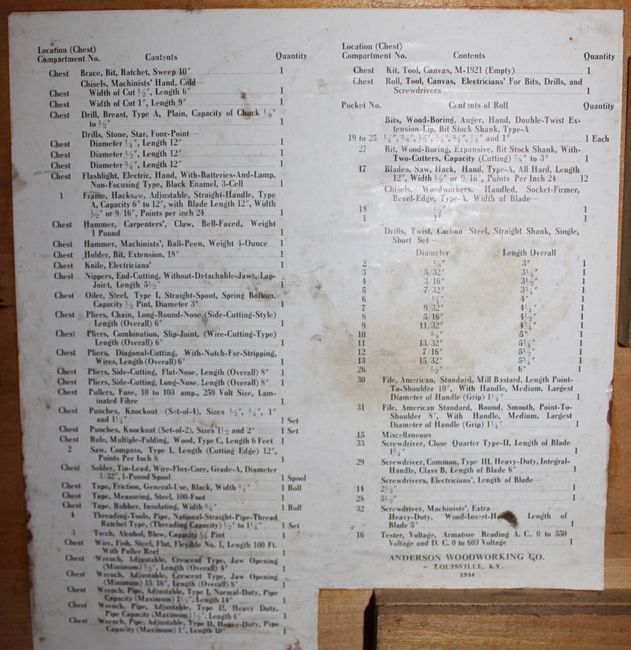 Location (Chest)
Compartment No. Contents Quantity
Chest Brace, Bit, Ratchet, Sweep 10" 1
Chisels, Machinists' Hand, Cold—
Chest Width of Cut ½", Length 6" 1
Chest Width of Cut 1", Length 9" 1
Chest Drill, Breast, Type A, Plain, Capacity of Chuck
to ½" 1
Drills, Stone, Star, Four-Point—
Chest Diameter Length 12" 1
Chest Diameter Length 12" 1
Chest Diameter Length 12" 1
Chest Flashlight, Electric, Hand, With-Batteries-And-Lamp,
Non-Focusing Type, Black Enamel, 3-Cell 1
1 Frame, Hacksaw, Adjustable, Straight-Handle, Type
A, Capacity 6" to 12", with Blade Length 12", Width
½" or 9/16", Points per inch 24 1
Chest Hammer, Carpenters', Claw, Bell-Faced, Weight
1 Pound 1
Chest Hammer, Machinists', Ball-Peen, Weight 4-Ounce 1
Chest Holder, Bit, Extension, 18" 1
Chest Knife, Electricians' 1
Chest Nippers, End-Cutting, Without-Detachable-Jaws, Lap-
Joint, Length 5½" 1
Chest Oiler, Steel, Type I, Straight-Spout, Spring Bottom,
Capacity Pint, Diameter 3" 1
Chest Pliers, Chain, Long-Round-Nose (Side-Cutting-Style)
Length (Overall) 6" 1
Chest Pliers, Combination, Slip-Joint, (Wire-Cutting-Type)
Length (Overall) 6" 1
Chest Pliers, Diagonal-Cutting, With-Notch-For-Stripping,
Wires, Length (Overall) 6" 1
Chest Pliers, Side-Cutting, Flat-Nose, Length (Overall) 8" 1
Chest Pliers, Side-Cutting, Long-Nose, Length (Overall) 8" 1
Chest Pullers, Fuse, 10 to 100 amp., 250 Volt Size, Lam-
inated Fibre 1
Chest Punches, Knockout (Set-of-4), Sizes ½", ¾", 1"
and 1¼" 1 Set
Chest Punches, Knockout (Set-of-2), Sizes 1½ and 2" 1 Set
Chest Rule, Multiple-Folding, Wood, Type C, Length 6 Feet 1
2 Saw, Compass, Type I, Length (Cutting Edge) 12",
Points Per Inch 8 1
Chest Solder, Tin-Lead, Wire-Flux-Core, Grade-A, Diameter
3/32", 1-Pound Spool 1 Spool
Chest Tape, Friction, General-Use, Black, Width ¾" 1 Roll
Chest Tape, Measuring, Steel, 100-Foot 1
Chest Tape, Rubber, Insulating, Width ¾" 1 Roll
4 Threading-Tools, Pipe, National-Straight-Pipe-Thread
Ratchet Type, (Threading Capacity) ½" to 1¼" 1 Set
3 Torch, Alcohol, Blow, Capacity Pint 1
Chest Wire, Fish, Steel, Flat, Flexible No. 1, Length 100 Ft.
With Puller Reel 1
Chest Wrench, Adjustable, Crescent Type, Jaw Opening
(Minimum) ½", Length (Overall) 4" 1
Chest Wrench, Adjustable, Crescent Type, Jaw Opening
(Minimum) 15/16", Length (Overall) 8" 1
Chest Wrench, Pipe, Adjustable, Type I, Normal-Duty, Pipe
Capacity (Maximum) 1½", Length 14" 1
Chest Wrench, Pipe, Adjustable, Type II, Heavy Duty,
Pipe Capacity (Maximum) Length 6" 1
Chest Wrench, Pipe, Adjustable, Type II, Heavy-Duty, Pipe
Capacity (Maximum) 1", Length 10" 1
Location (Chest)
Compartment No. Contents Quantity
Chest Kit, Tool, Canvas, M-1921 (Empty) 1
Chest Roll, Tool, Canvas, Electricians' For Bits, Drills, and
Screwdrivers 1
Pocket No. Contents of Roll Quantity
Bits, Wood-Boring, Auger, Hand, Double-Twist Ex-
tension-Lip, Bit Stock Shank, Type-A
19 to 25 and 1" 1 Each
27 Bit, Wood-Boring, Expansive, Bit Stock Shank, With-
Two-Cutters, Capacity (Cutting) to 3" 1
17 Blades, Saw, Hack, Hand, Type-A, All Hard, Length
12", Width ½" or 9/16", Points Per Inch 24 12
Chisels, Woodworkers, Handled, Socket-Firmer,
Bevel-Edge, Type-A, Width of Blade—
18 1
1 1
Drills, Twist, Carbon Steel, Straight Shank, Single,
Short Set—
Diameter Length Overall
2 3" 1
3 5/32" 3¼" 1
4 3/16" 3½" 1
5 7/32" 3¾" 1
6 ¼" 4" 1
7 9/32" 4¼" 1
8 5/16" 4½" 1
9 11/32" 4¾" 1
10 5" 1
11 13/32" 5¼" 1
12 7/16" 5½" 1
13 15/32" 5¾" 1
26 ½" 6" 1
30 File, American, Standard, Mill Bastard, Length Point-
To-Shoulder 10", With Handle, Medium, Largest
Diameter of Handle (Grip) 1¼" 1
31 File, American Standard, Round, Smooth, Point-To-
Shoulder 8", With Handle, Medium, Largest
Diameter of Handle (Grip) 1
15 Miscellaneous
33 Screwdriver, Close Quarter Type-II, Length of Blade
1
29 Screwdriver, Common, Type III, Heavy-Duty, Integral-
Handle, Class B, Length of Blade 6" 1
Screwdrivers, Electricians', Length of Blade—
14 2½" 1
28 5½" 1
32 Screwdriver, Machinists', Extra
Heavy-Duty, Wood-Insert-Handle, Length of
Blade 5" 1
16 Tester, Voltage, Armature Reading A. C. 0 to 550
Voltage and D. C. 0 to 600 Voltage 1
ANDERSON WOODWORKING CO.
LOUISVILLE, KY.
1944